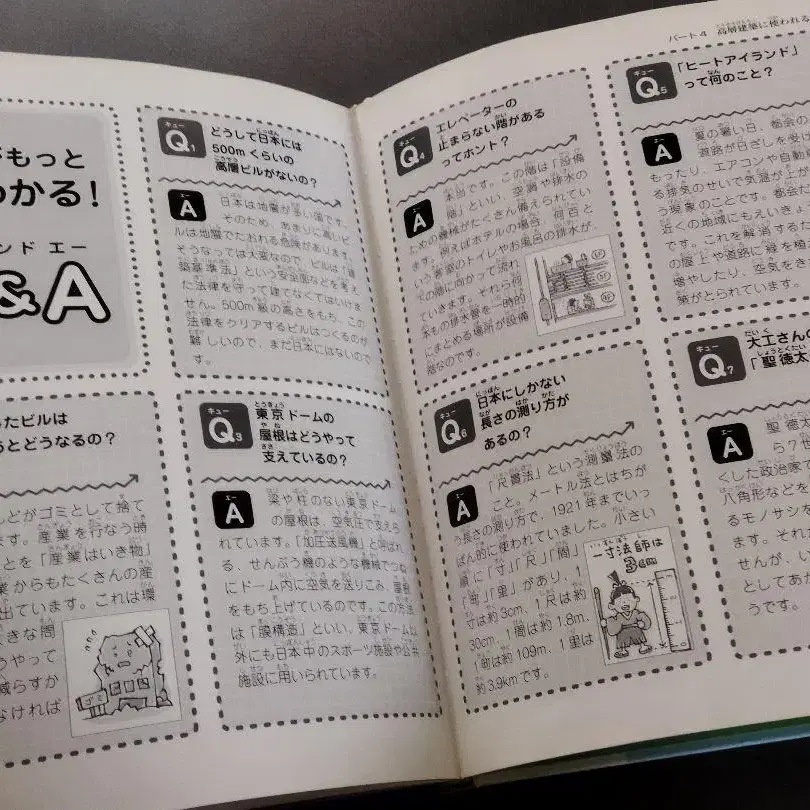 がもっと
わかる！
ンド エー
&A
Q1 どうして日本には
500mくらいの
高層ビルがないの？
A 日本は地震が多い国です。
そのため、あまりに高いビ
ルは地震でたおれる危険があります。
そうなっては大変なので、ビルは「建
築基準法」という安全面などを考え
た法律を守って建てなくてはいけま
せん。500m級の高さをもち、この
法律をクリアするビルはつくるのが
難しいので、まだ日本にはないので
す。
たビルは
るとどうなるの？
どがゴミとして捨て
ます。産業を行なう時
ことを「産業はいき物」
業からもたくさんの産
出ています。これは環
きな問
うやって
減らすか
なければ
ゴミ
Q3 東京ドームの
屋根はどうやって
支えているの？
A 梁や柱のない東京ドーム
の屋根は、空気圧で支えら
れています。「加圧送風機」と呼ばれ
る、せんぷう機のような機械でつね
にドーム内に空気を送りこみ、屋根
をもち上げているのです。この方法
は「膜構造」といい、東京ドーム以
外にも日本中のスポーツ施設や公共
施設に用いられています。
パート4 高層建築に使われる
Q4 エレベーターの
止まらない階がある
ってホント？
A 本当です。この階は「設備
階」といい、空調や排水の
ための機械がたくさん備えられてい
ます。例えばホテルの場合、何百と
いう客室のトイレやお風呂の排水が、
この階に向かって流れ
ていきます。それら何
本もの排水管を一時的
にまとめる場所が設備
階なのです。
Q6 日本にしかない
長さの測り方が
あるの？
A 「尺貫法」という測量法の
こと。メートル法とはちが
う長さの測り方で、1921年までいっ
ぱん的に使われていました。小さい
順に「寸」「尺」「間」
「町」「里」があり、1
寸は約3cm、1尺は約
30cm、1間は約1.8m、
1町は約109m、1里は
約3.9kmです。
一寸法師は
3cm
Q5 「ヒートアイランド」
って何のこと？
A 夏の暑い日、都会の
道路が日ざしを受け
もったり、エアコンや自動車
る排気のせいで気温が上が
う現象のことです。都会
近くの地域にもえいきょ
です。これを解消するた
の屋上や道路に緑を植
増やしたり、空気をき
策がとられています。
Q7 大工さんの
「聖徳太
A 聖徳太
ら？せ
くした政治家
八角形などを
るモノサシを
ます。それだ
せんが、い
としてあが
うです。